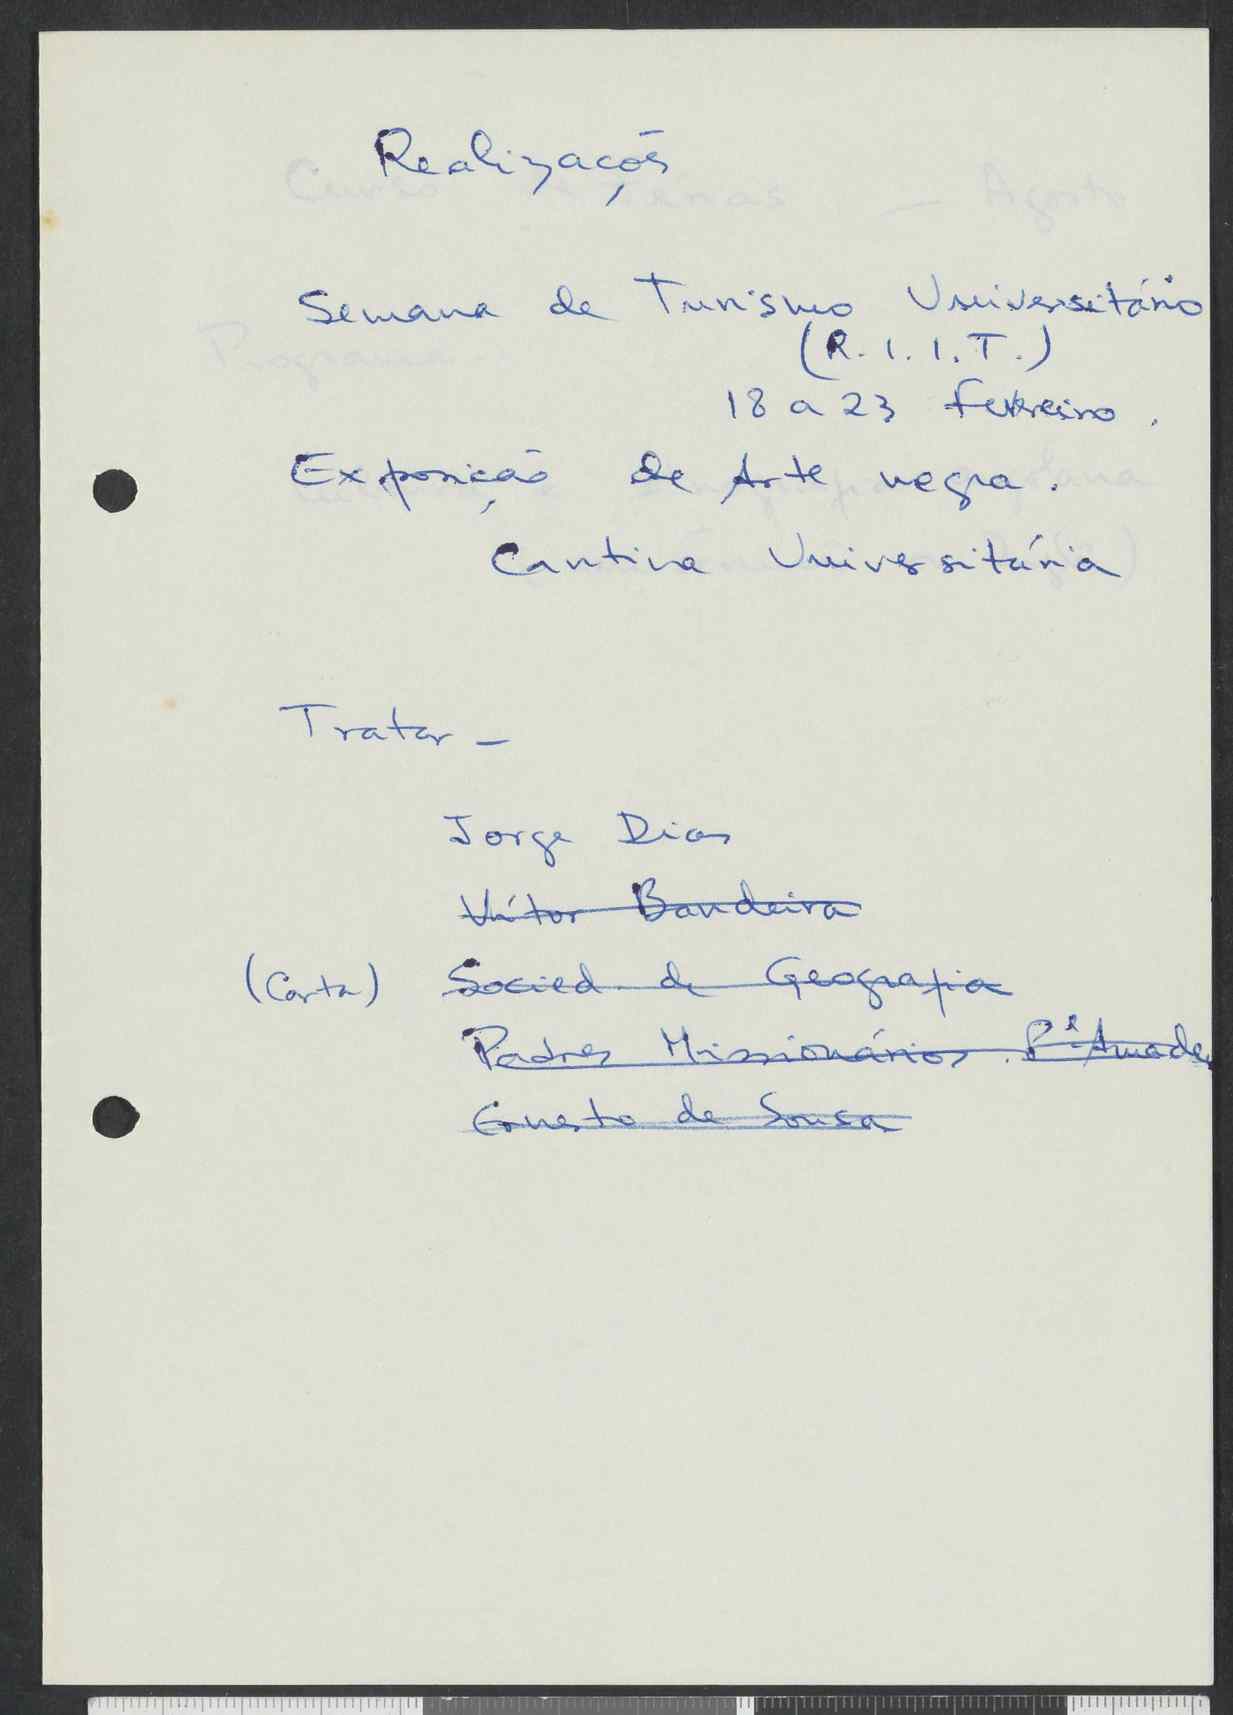 Realizações
Semana de Turismo Universitário
(R. I. I. T.)
18 a 23 fevereiro.
Exposição de Arte negra.
Cantina Universitária
Tratar –
Jorge Dias
Vítor Bandeira
(Carta) Socied. de Geografia
Padres Missionários. Pe Amade
Ernesto de Sousa